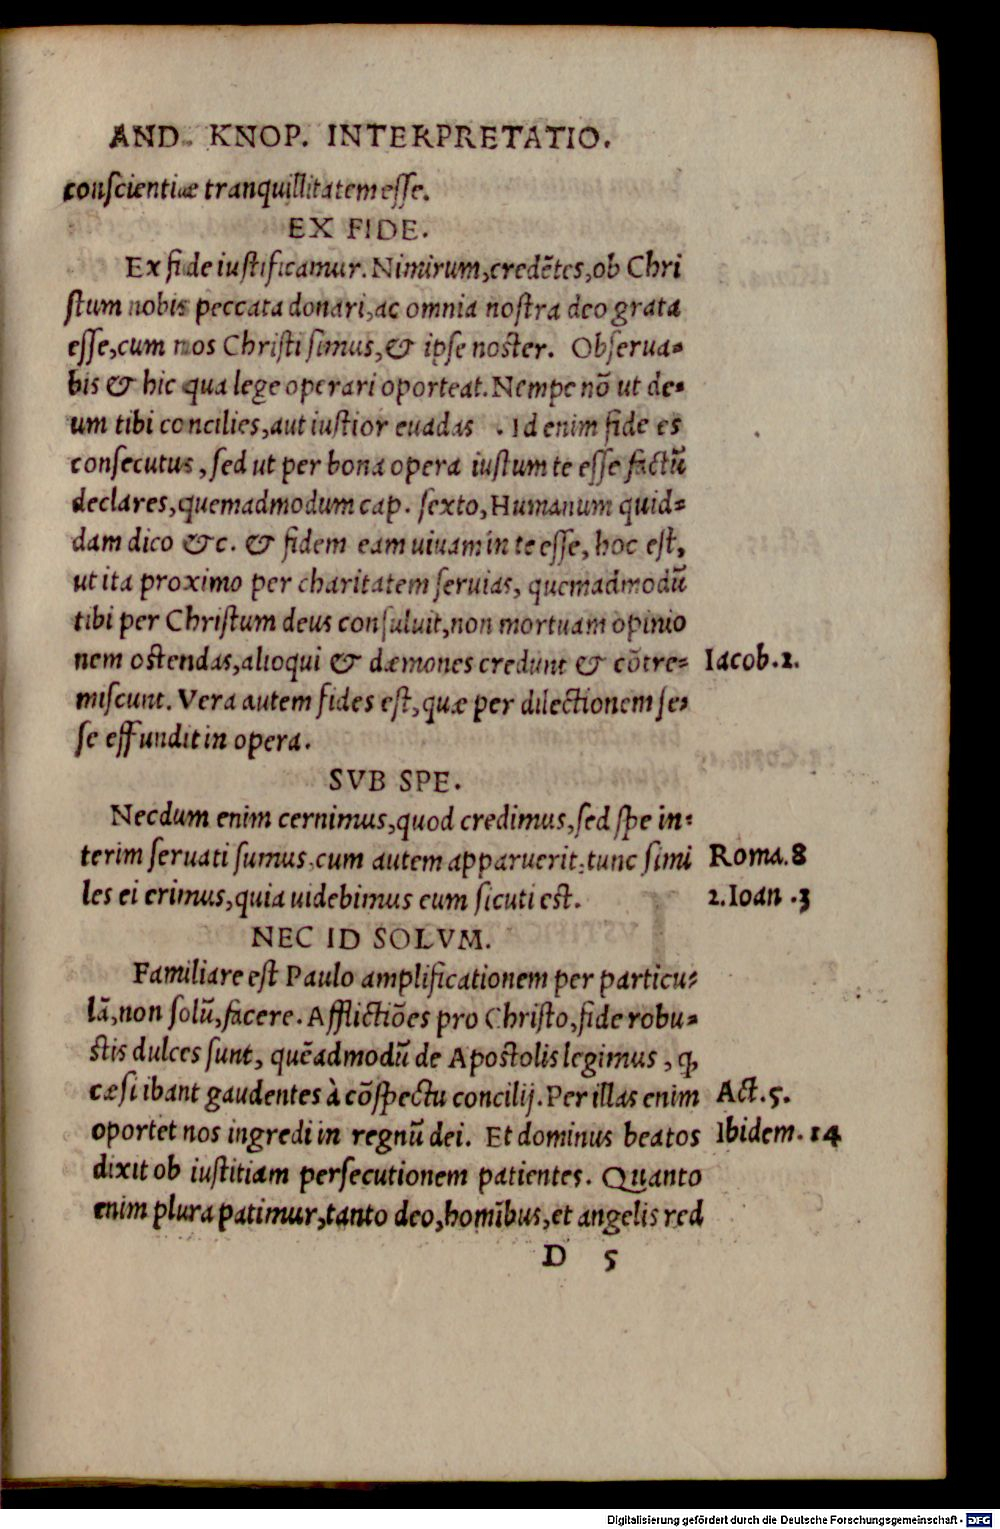 AND. KNOP. INTERPRETATIO.
conscientiæ tranquillitatem esse.
EX FIDE.
Ex fide iustificamur. Nimirum, credẽtes, ob Chri
stum nobis peccata donari, ac omnia nostra deo grata
esse, cum nos Christi simus, & ipse noster. Obserua-
bis & hic qua lege operari oporteat. Nempe nõ ut de-
um tibi concilies, aut iustior euadas . Id enim fide es
consecutus, sed ut per bona opera iustum te esse factũ
declares, quemadmodum cap. sexto, Humanum quid-
dam dico &c. & fidem eam uiuam in te esse, hoc est,
ut ita proximo per charitatem seruias, quemadmodũ
tibi per Christum deus consuluit, non mortuam opinio
nem ostendas, alioqui & dæmones credunt & cõtre- Iacob. 2.
miscunt. Vera autem fides est, quæ per dilectionem se-
se effundit in opera.
SVB SPE.
Necdum enim cernimus, quod credimus, sed spe in-
terim seruati sumus, cum autem apparuerit, tunc simi Roma. 8
les ei erimus, quia uidebimus eum sicuti est. 2. Ioan .3
NEC ID SOLVM.
Familiare est Paulo amplificationem per particu-
lã, non solũ, facere. Afflictiões pro Christo, fide robu-
stis dulces sunt, quẽadmodũ de Apostolis legimus, ꝙ
cæsi ibant gaudentes à cõspectu concilij. Per illas enim Act. 5.
oportet nos ingredi in regnũ dei. Et dominus beatos Ibidem. 14
dixit ob iustitiam persecutionem patientes. Quanto
enim plura patimur, tanto deo, homĩbus, et angelis red
D 5
Digitalisierung gefördert durch die Deutsche Forschungsgemeinschaft - DFG